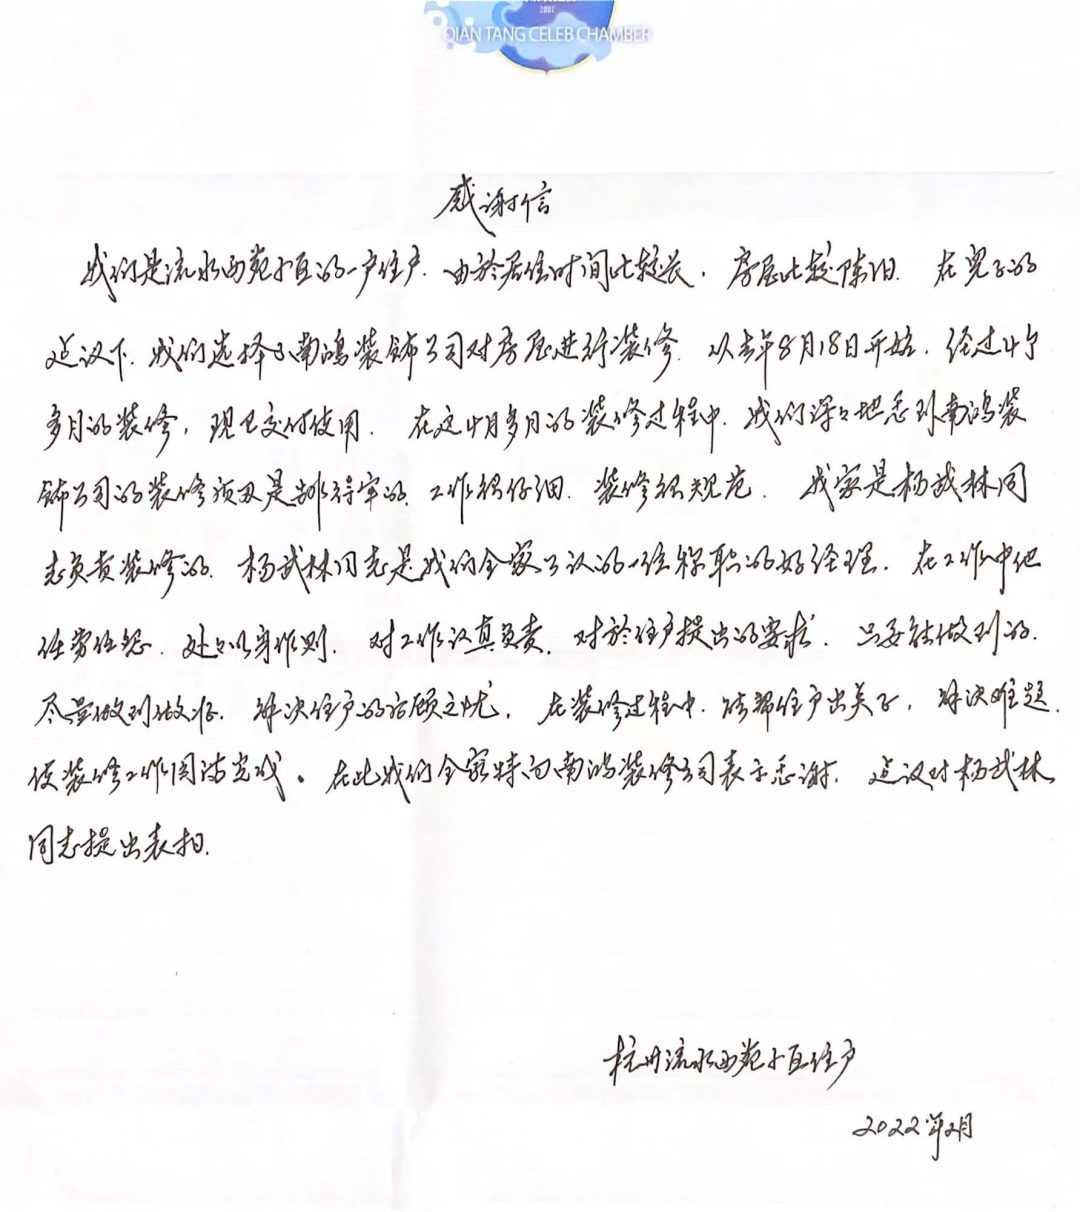 2007
QIAN TANG CELEB CHAMBER
感谢信
我们是流水西苑小区的一户住户.由於居住时间比较长,房屋比较陈旧.在儿子的
建议下.我们选择了南鸿装饰公司对房屋进行装修.从去年8月18日开始.经过4个
多月的装修,现已交付使用.在这4个月多月的装修过程中.我们深深地感到南鸿装
饰公司的装修质量是过得牢的.工作很仔细.装修很规范.我家是杨武林同
志负责装修的.杨武林同志是我们全家公认的一位称职的好经理.在工作中他
任劳任怨.处处以身作则.对工作认真负责.对於住户提出的要求.只要能做到的.
尽量做到做好.解决住户的后顾之忧,在装修过程中.能帮住户出点子,解决难题.
使装修工作圆满完成。在此我们全家特向南鸿装修公司表示感谢.建议对杨武林
同志提出表扬.
杭州流水西苑小区住户
2022年2月